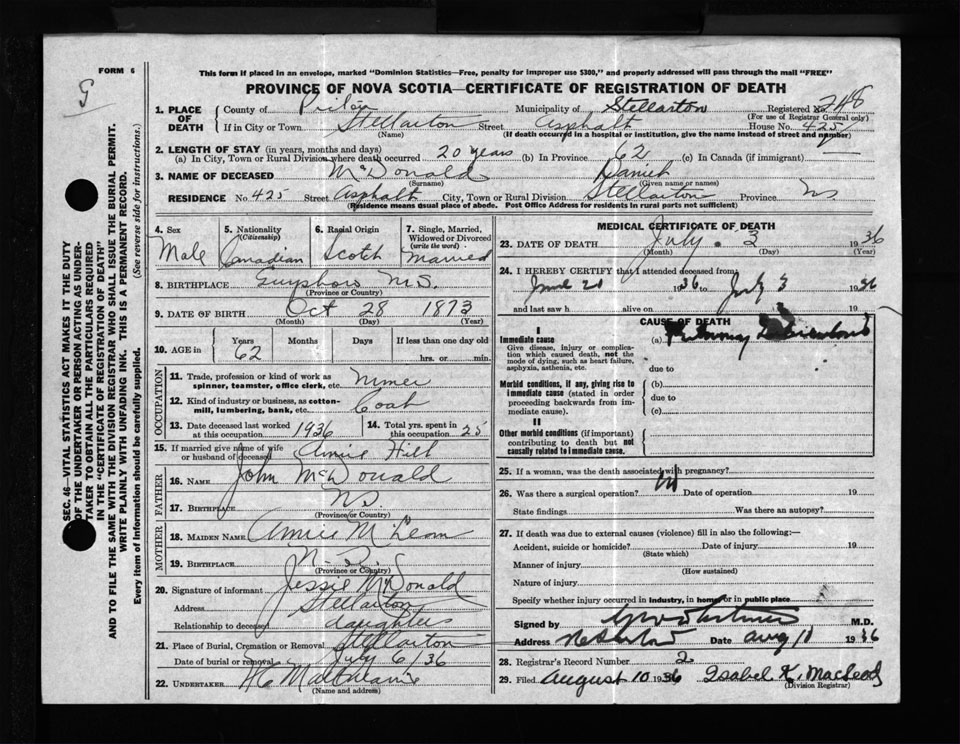 FORM 6
G
This form if placed in an envelope, marked "Dominion Statistics—Free, penalty for improper use $300," and properly addressed will pass through the mail "FREE"
PROVINCE OF NOVA SCOTIA—CERTIFICATE OF REGISTRATION OF DEATH
1. PLACE OF DEATH County of Pictou Municipality of Stellarton Registered No. 248
(For use of Registrar General only)
If in City or Town Stellarton Street Asphalt House No. 425
(Name) (If death occurred in a hospital or institution, give the name instead of street and number)
2. LENGTH OF STAY (in years, months and days)
(a) In City, Town or Rural Division where death occurred 20 years (b) In Province 62 (c) In Canada (if immigrant) —
3. NAME OF DECEASED McDonald Daniel
(Surname) (Given name or names)
RESIDENCE No. 425 Street Asphalt City, Town or Rural Division Stellarton Province N.S.
(Residence means usual place of abode. Post Office Address for residents in rural parts not sufficient)
4. Sex Male
5. Nationality (Citizenship) Canadian
6. Racial Origin Scotch
7. Single, Married, Widowed or Divorced (write the word) Married
8. BIRTHPLACE Guysboro N.S.
(Province or Country)
9. DATE OF BIRTH Oct 28 1873
(Month) (Day) (Year)
10. AGE in Years 62 Months Days If less than one day old
hrs. or min.
OCCUPATION
11. Trade, profession or kind of work as spinner, teamster, office clerk, etc. Miner
12. Kind of industry or business, as cotton-mill, lumbering, bank, etc. Coal
13. Date deceased last worked at this occupation 1936
14. Total yrs. spent in this occupation 25
15. If married give name of wife or husband of deceased Annie Hill
FATHER
16. NAME John McDonald
17. BIRTHPLACE N.S.
(Province or Country)
MOTHER
18. MAIDEN NAME Annie McLean
19. BIRTHPLACE N.S.
(Province or Country)
20. Signature of informant Jessie McDonald
Address Stellarton
Relationship to deceased daughter
21. Place of Burial, Cremation or Removal Stellarton
Date of burial or removal July 6/36
22. UNDERTAKER
(Name and address)
MEDICAL CERTIFICATE OF DEATH
23. DATE OF DEATH July 3 1936
(Month) (Day) (Year)
24. I HEREBY CERTIFY that I attended deceased from
June 20 1936 to July 3 1936
and last saw h alive on 19
CAUSE OF DEATH
I
Immediate cause (a)
Give disease, injury or complication which caused death, not the mode of dying, such as heart failure, asphyxia, asthenia, etc.
due to
Morbid conditions, if any, giving rise to immediate cause (stated in order proceeding backwards from immediate cause).
(b)
due to
(c)
II
Other morbid conditions (if important) contributing to death but not causally related to immediate cause.
25. If a woman, was the death associated with pregnancy?
26. Was there a surgical operation? Date of operation 19
State findings Was there an autopsy?
27. If death was due to external causes (violence) fill in also the following:—
Accident, suicide or homicide? Date of injury 19
(State which)
Manner of injury
(How sustained)
Nature of injury
Specify whether injury occurred in industry, in home, or in public place
Signed by M.D.
Address Date Aug 11 1936
28. Registrar's Record Number 2
29. Filed August 10 1936 Isabel K. MacLeod
(Division Registrar)
SEC. 46—VITAL STATISTICS ACT MAKES IT THE DUTY
OF THE UNDERTAKER OR PERSON ACTING AS UNDERTAKER TO OBTAIN ALL THE PARTICULARS REQUIRED
IN THE "CERTIFICATE OF REGISTRATION OF DEATH"
AND TO FILE THE SAME WITH THE DIVISION REGISTRAR WHO SHALL ISSUE THE BURIAL PERMIT.
WRITE PLAINLY WITH UNFADING INK. THIS IS A PERMANENT RECORD.
Every item of information should be carefully supplied. (See reverse side for instructions.)